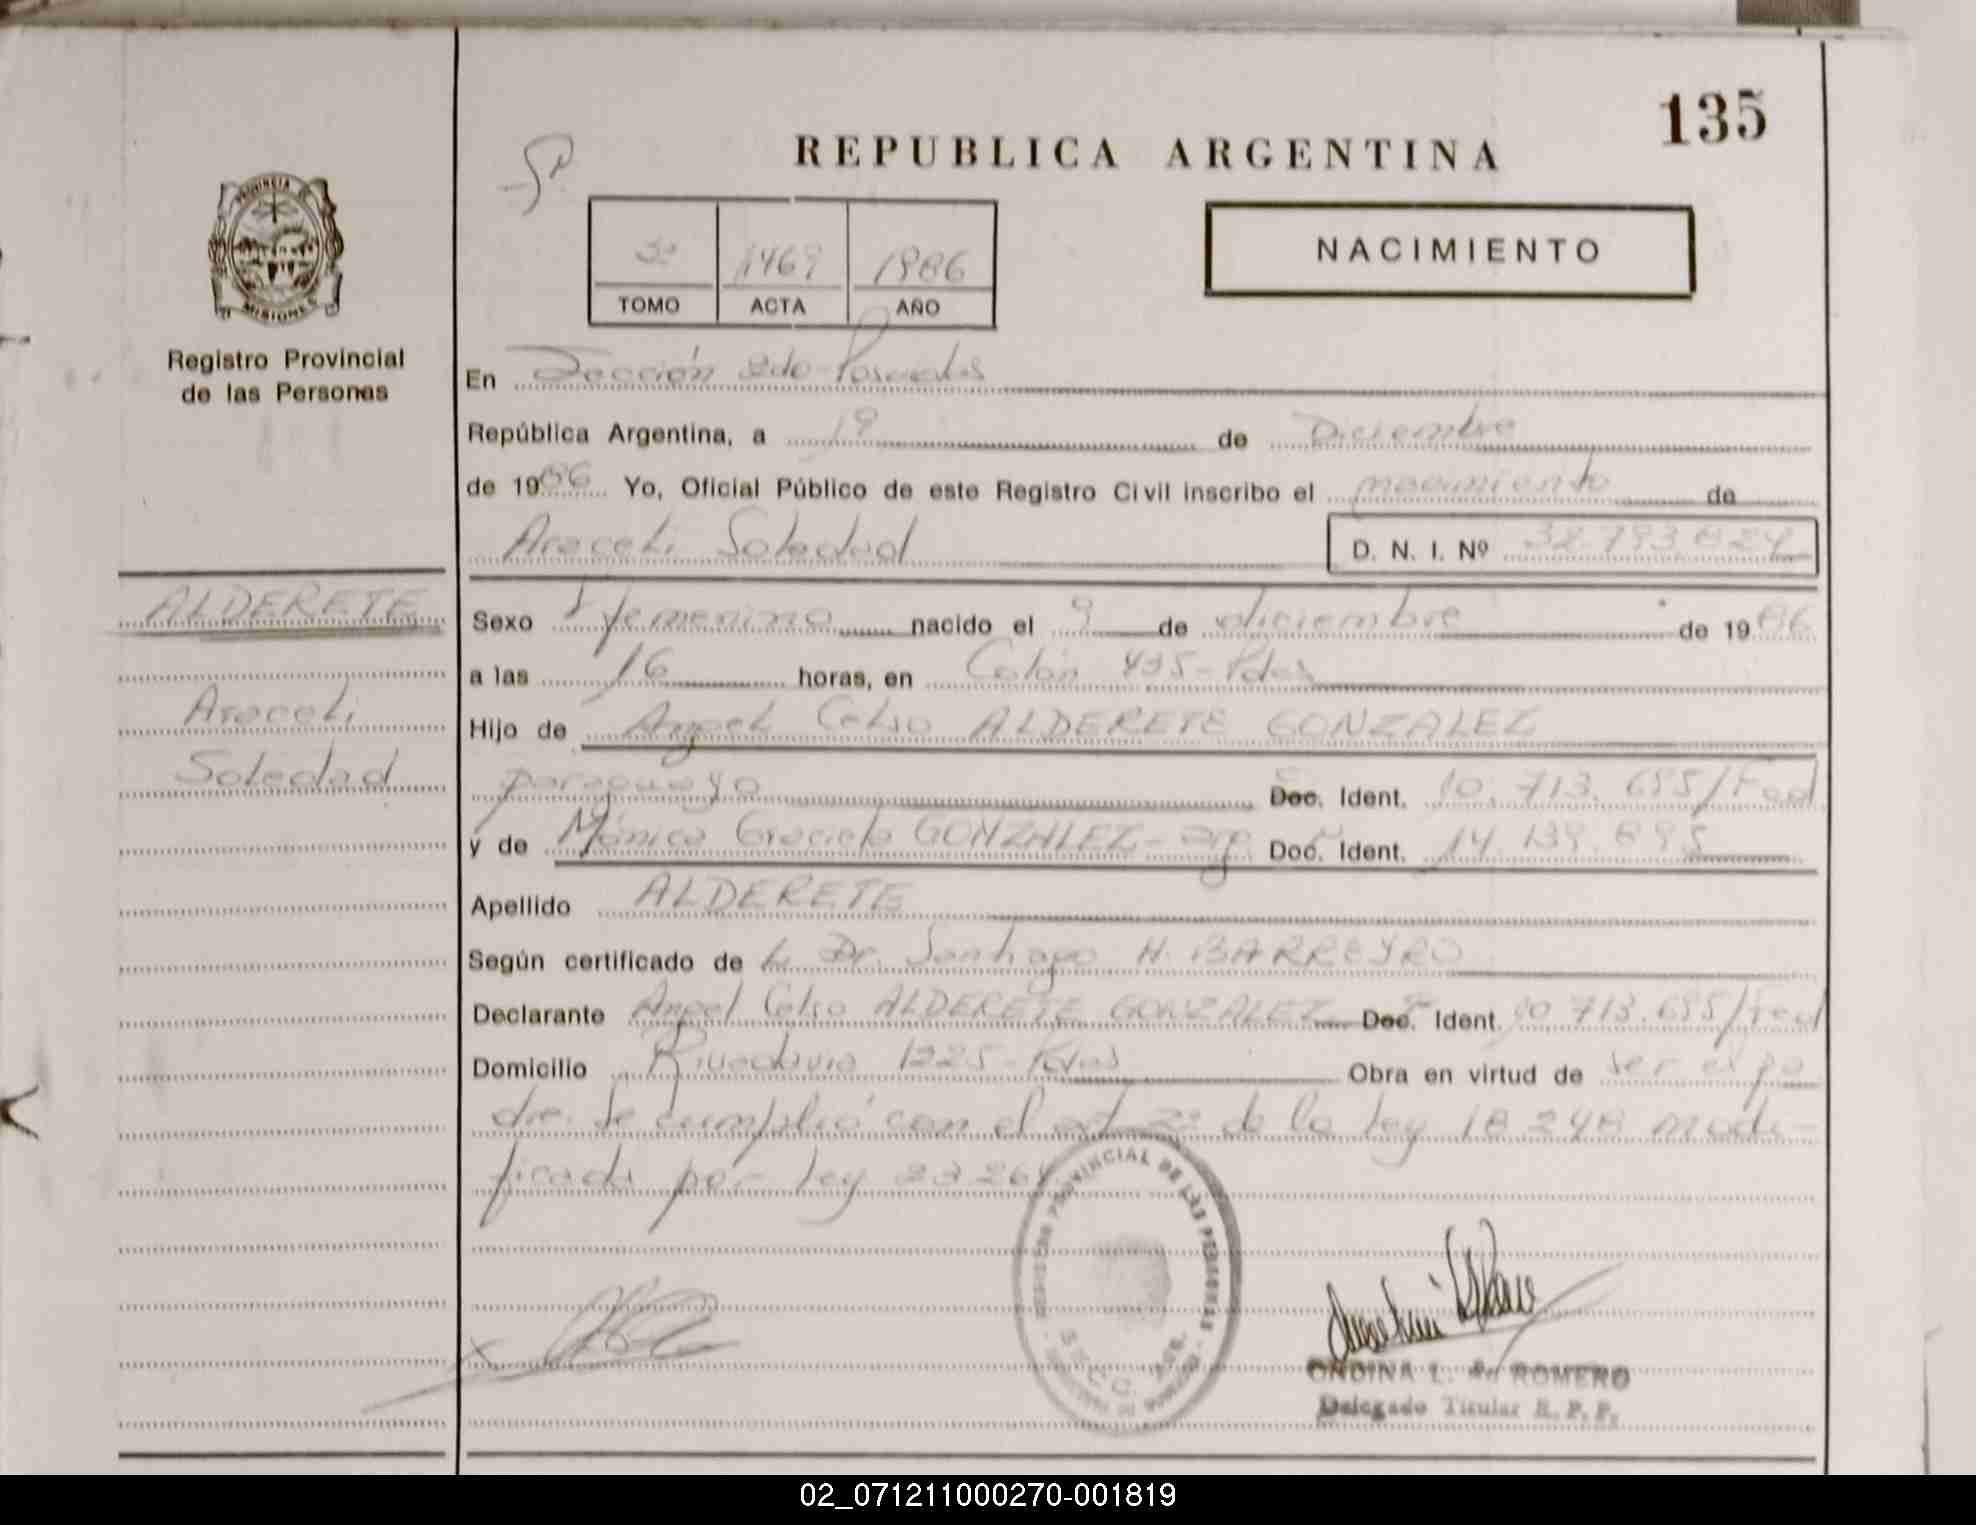 135
REPUBLICA ARGENTINA
PROVINCIA
MISIONES
Registro Provincial
de las Personas
3º 1469 1986
TOMO ACTA AÑO
NACIMIENTO
En Sección 2do - Posadas
República Argentina, a 19 de Diciembre
de 1986 Yo, Oficial Público de este Registro Civil inscribo el nacimiento de
Araceli Soledad D. N. I. Nº
ALDERETE
Araceli
Soledad
Sexo femenino nacido el 9 de diciembre de 1986
a las 16 horas, en Colón 435 - Pdas
Hijo de Angel Celso ALDERETE GONZALEZ
paraguayo Doc. Ident. 10.713.655/Fed
y de Mónica Graciela GONZALEZ - arg Doc. Ident. 14.139.895
Apellido ALDERETE
Según certificado de la Dr. Santiago H. BARREYRO
Declarante Angel Celso ALDERETE GONZALEZ Doc. Ident. 10.713.655/Fed
Domicilio Rivadavia 1225 - Pdas Obra en virtud de ser el pa
dre. Se cumplió con el art 2º de la ley 18.248 modi-
ficada por ley 23264
REGISTRO PROVINCIAL DE LAS PERSONAS
ONDINA L. de ROMERO
Delegado Titular R. P. P.
02_071211000270-001819